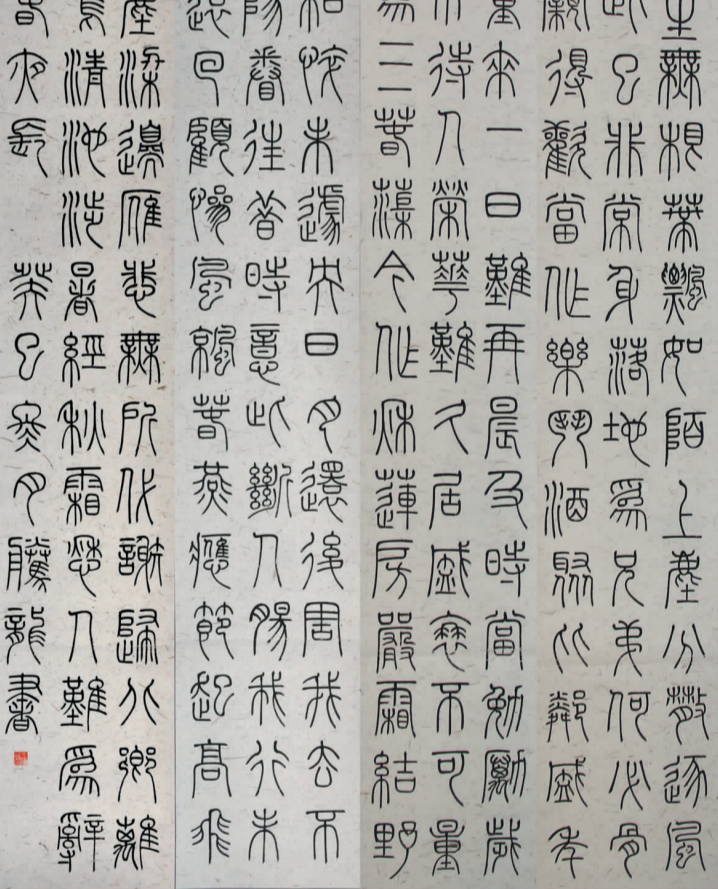 生無根蒂飄如陌上塵分散逐風
此已非常身落地爲兄弟何必骨
親得歡當作樂鬥酒聚比鄰盛年
重來一日難再晨及時當勉勵歲
不待人榮華難久居盛衰不可量
爲三春蕖今作秋蓮房嚴霜結野
枯悴未遽央日月還復周我去不
陽眷往昔時憶此斷人腸我行未
遠回顧慘風涼春燕應節起高飛
塵梁邊雁悲無所代謝歸北鄉離
鳴清池涉暑經秋霜愁人難爲辭
春夜長
癸巳冬月騰龍書